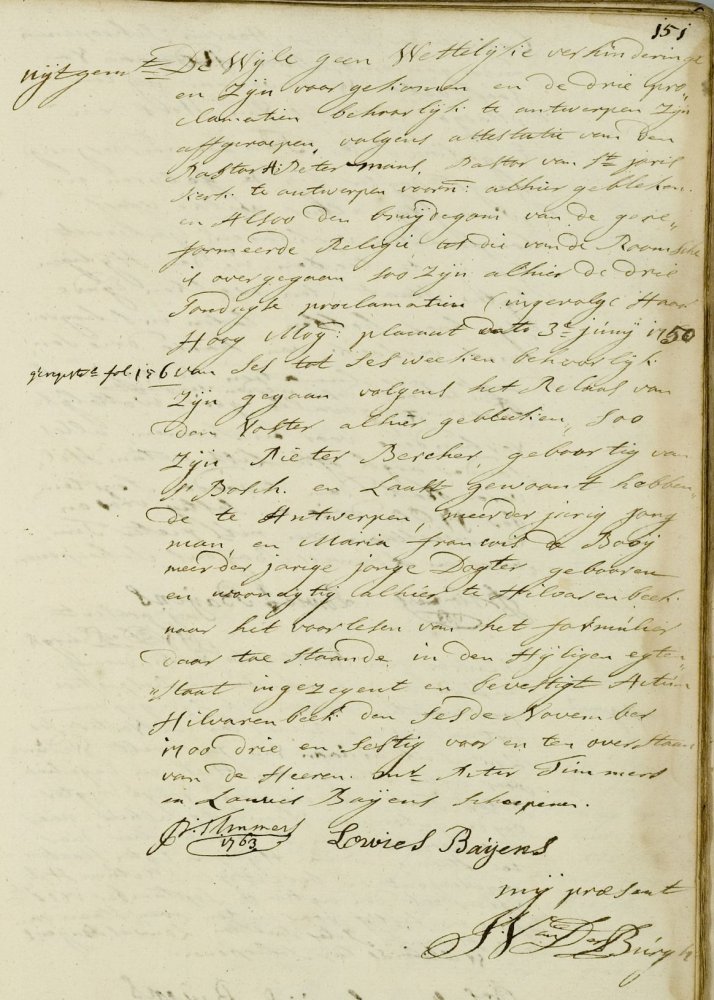 151
uijtgemt De Wijle geen Wettelijke verhinderinge
en Zijn voor gekomen en de drie pro„
clamatien behoorlijk te antwerpen Zijn
affgeroepen, volgens attestatie van den
Pastor Petermans, Pastor van St joris
kerk te antwerpen voorn: alhier gebleken.
en Alsoo den bruijdegom van de gere„
formeerde Religie tot die van de Roomsche
is overgegaan soo Zijn alhier de drie
Sondagse proclamatien (ingevolge Haar
Hoog Mog: placaat dato 3e junij 1750
geregistt fol: 176 van ses tot ses weeken behoorlijk
Zijn gegaan volgens het Relaas van
den Voster alhier gebleken, soo
Zijn Pieter Bercher, geboortig van
S Bosch. en Laatst gewoont hebben„
de te Antwerpen, meerderjarig jong
man, en Maria francois de Booij
meerder jarige jonge Dogter gebooren
en woonagtig alhier te Hilvarenbeek.
naar het voorlesen van het formulier
daar toe staande in den Hijligen egten„
„staat ingezegent en bevestigt Actum
Hilvarenbeek den sesde November
1700 drie en sestig voor en ten overstaan
van de Heeren. mr Peter Timmers
en Louwies Baijens schepenen.
P: Timmers
1763
Lowies Baijens
mij præsent
J: Van Der Burgh